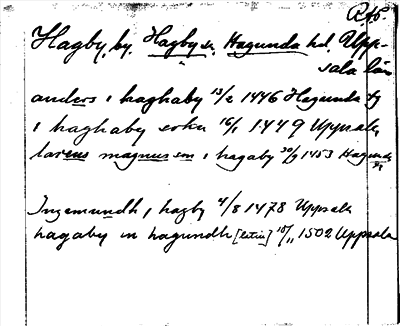 RAÖ.
Hagby, by. Hagby sn. Hagunda hd. Upp-
sala län
anders i haghaby 13/2 1446 Hagunda
i haghaby sokn 16/1 1449 Uppsala
larens magnus son i hagaby 30/9 1453 Hagunda
Ingemundh i hagby 4/8 1478 Uppsala
hagaby in hagundh [latin] 10/11 1502 Uppsala